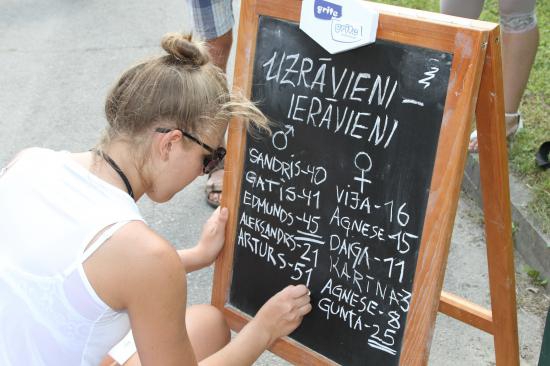 grite
grite!
UZRĀVIENI –
IERĀVIENI
♂
SANDRIS-40
GATIS-41
EDMUNDS-45
ALEKSANDRS-21
ARTURS-51
♀
VIJA-16
AGNESE-15
DAIGA-11
KARĪNA-3
AGNESE-8
GUNTA-25